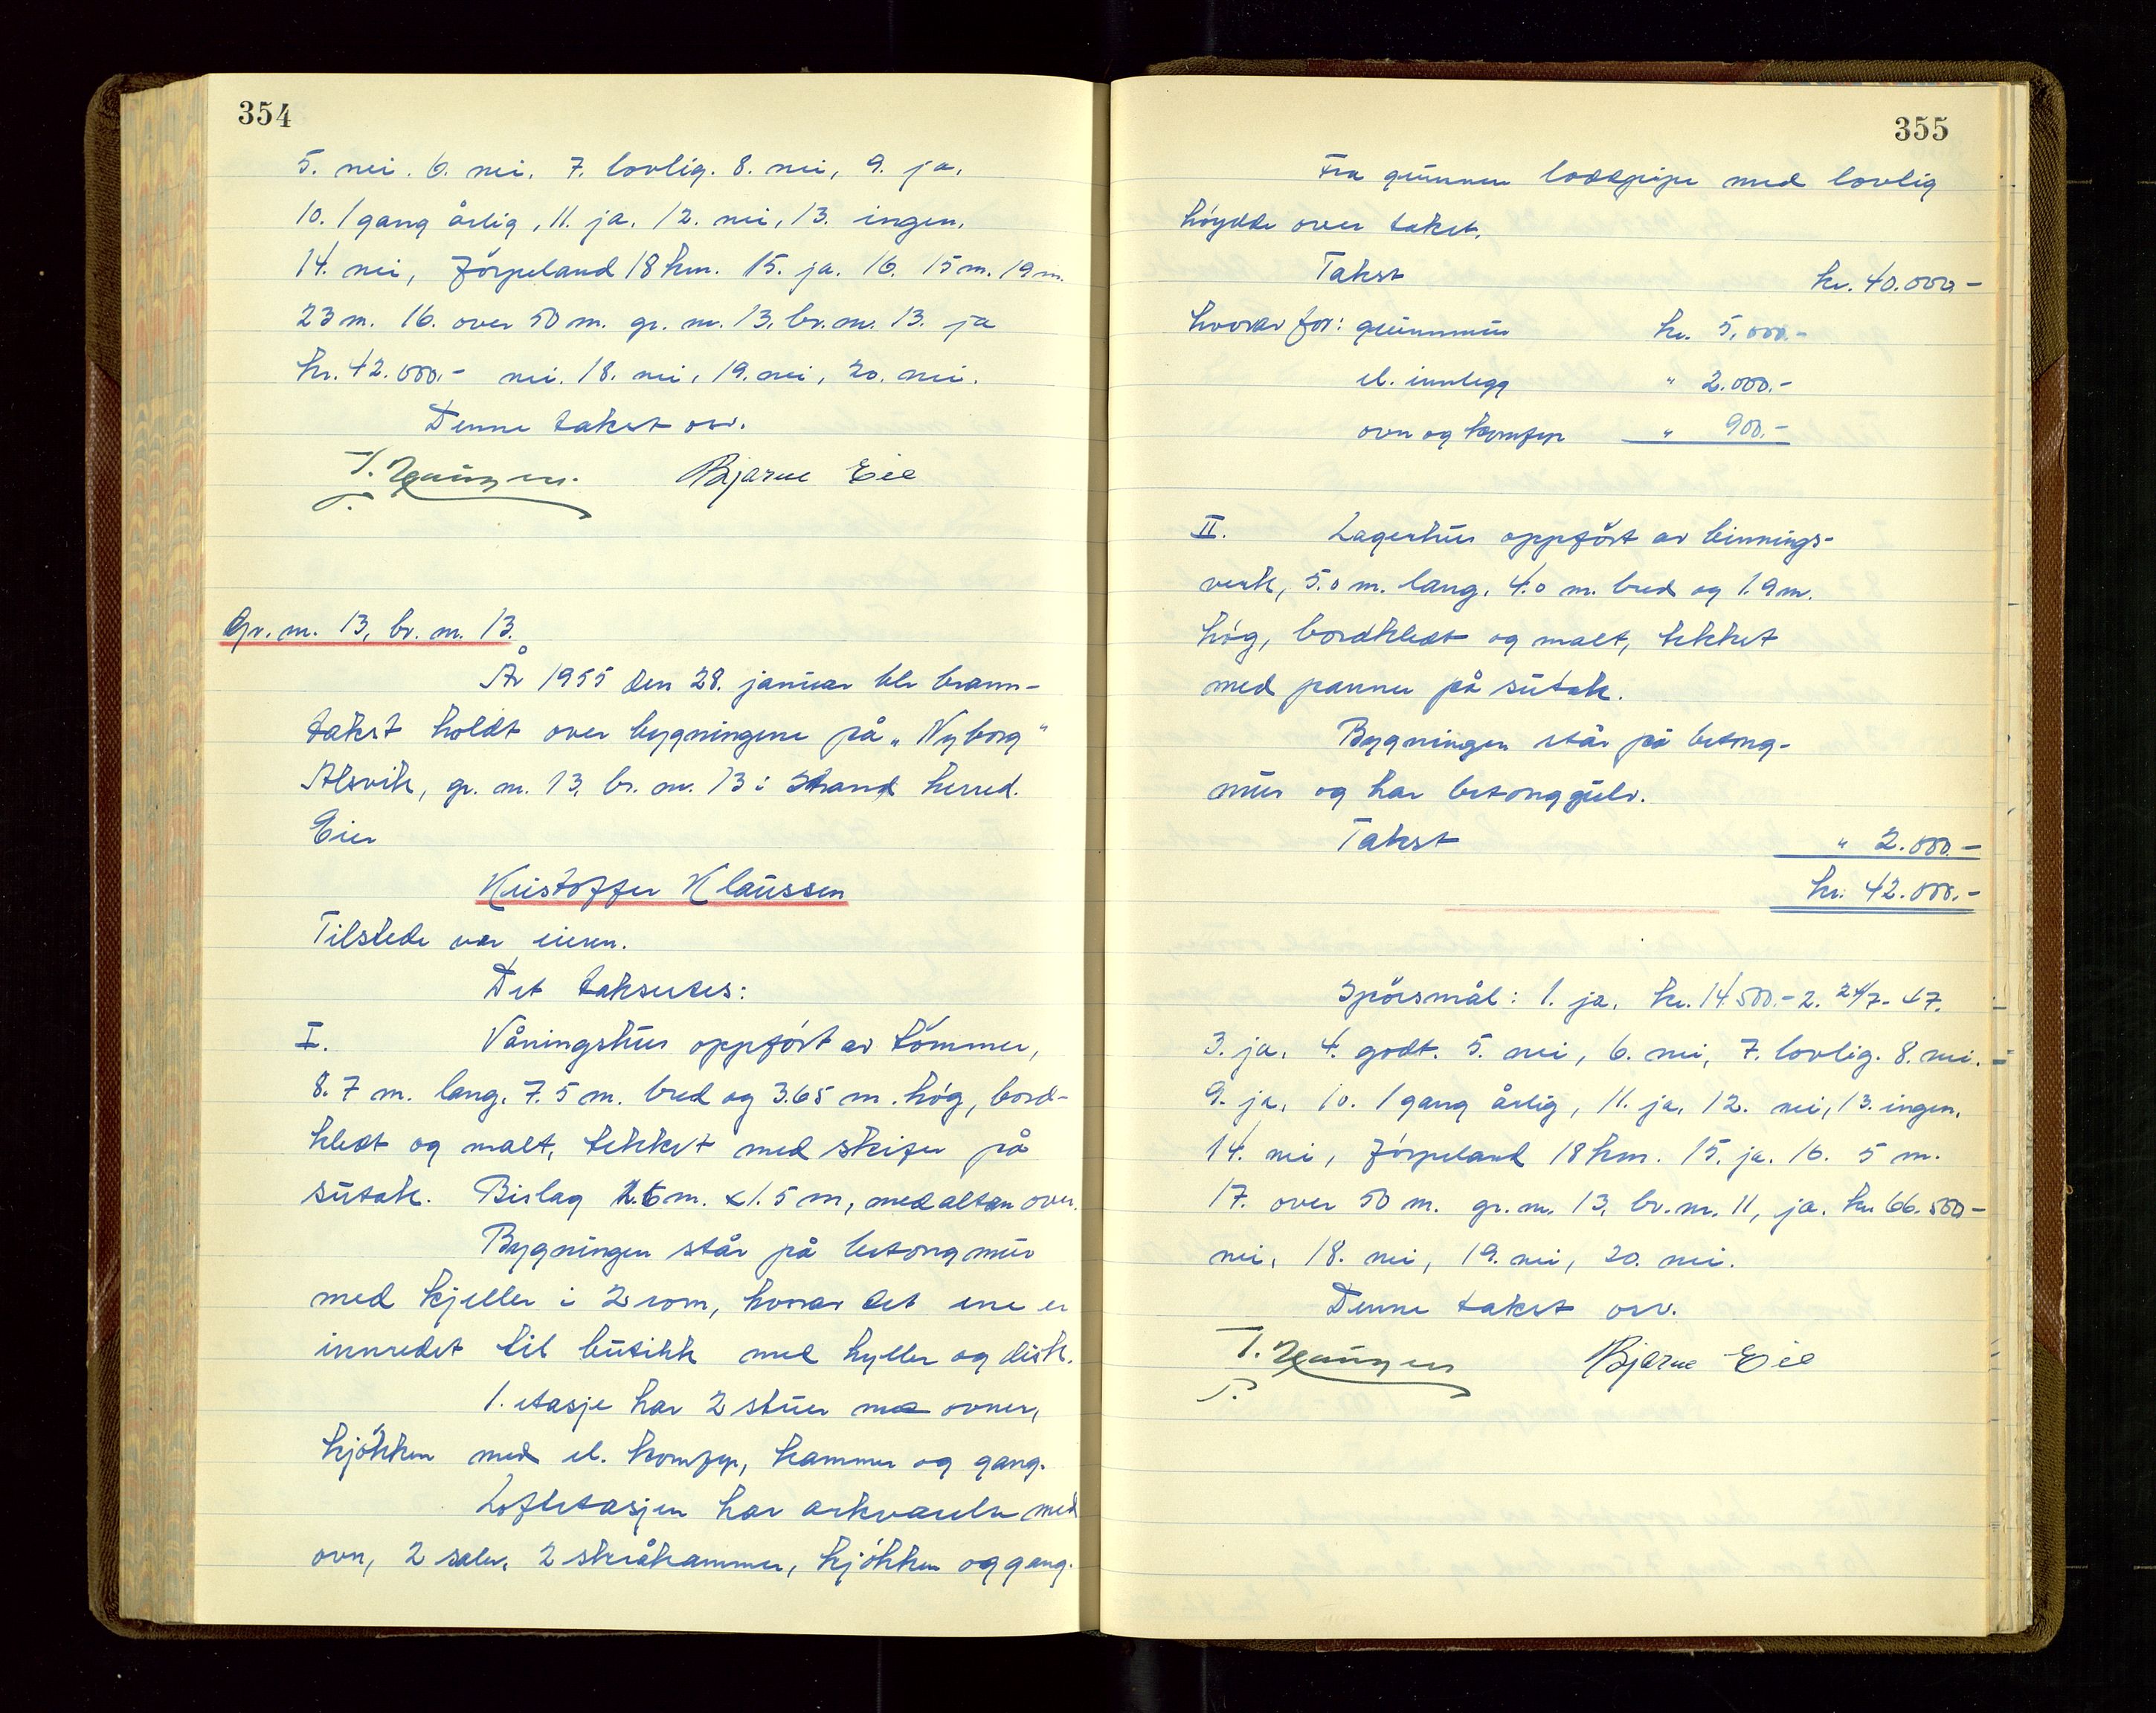 354
5. nei. 6. nei. 7. lovlig. 8. nei, 9. ja.
10. 1 gang årlig, 11. ja. 12. nei, 13. ingen.
14. nei, Jörpeland 18 km. 15. ja. 16. 15 m. 19 m.
23 m. 16. over 50 m. gr. nr. 13. br. nr. 13. ja
kr. 42.000.- nei. 18. nei, 19. nei, 20. nei.
Denne takst osv.
T. Bjarne Eie
Gr. nr. 13, br. nr. 13.
År 1955 den 28. januar ble brann-
takst holdt over bygningene på "Nyborg"
Alsvik, gr. nr. 13, br. nr. 13 i Strand herred.
Eier
Kristoffer Klaussen
Tilstede var eieren.
Det takseres:
I. Våningshus oppført av tömmer,
8.7 m. lang, 7.5 m. bred og 3.65 m. hög, bord-
kledt og malt, tekket med skifer på
sutak. Bislag 1.6 m. x 1.5 m, med altan over.
Bygningen står på betongmur
med kjeller i 2 rom, hvorav det ene er
innredet til butikk med hyller og disk.
1. etasje har 2 stuer med ovner,
kjökken med el. komfyr, kammer og gang.
Loftetasjen har arkværelse med
ovn, 2 saler, 2 skråkammer, kjökken og gang.
355
Fra grunnen loddpipe med lovlig
höydde over taket.
Takst kr. 40.000-
hvorav for: grunnmur kr. 5.000.-
el. innlegg " 2.000.-
ovn og komfyr " 900.-
II. Lagerhus oppfört av binnings-
verk, 5.0 m. lang, 4.0 m. bred og 1.9 m.
hög, bordkledt og malt, tekket
med panner på sutak.
Bygningen står på betong-
mur og har betonggulv.
Takst " 2.000.-
kr. 42.000.-
Spörsmål: 1. ja, kr. 14500.- 2. 24/7-47.
3. ja. 4. godt. 5. nei, 6. nei, 7. lovlig. 8. nei.
9. ja, 10. 1 gang årlig, 11. ja, 12. nei, 13. ingen.
14. nei, Jörpeland 18 km. 15. ja. 16. 5 m.
17. over 50 m. gr. nr. 13, br. nr. 11, ja. kr. 66.500-
nei, 18. nei, 19. nei, 20. nei.
Denne takst osv.
T. Bjarne Eie